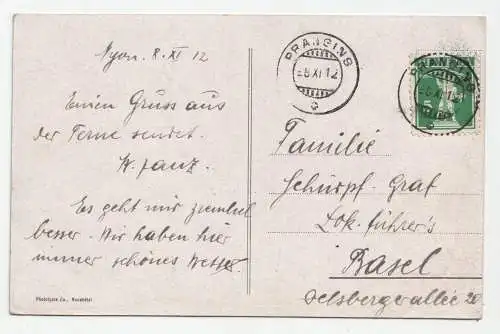 Nyon. 8. XI 12
Einen Gruss aus
der Ferne sendet.
W. Janz.
Es geht mir ziemlich
besser. Wir haben hier
immer schönes Wetter.
Phototypie Co., Neuchâtel
PRANGINS
-8.XI.12
PRANGINS
-8.XI.12
5
Familie
Schürpf-Graf
Lok.führer's
Basel
Delsbergerallee 20